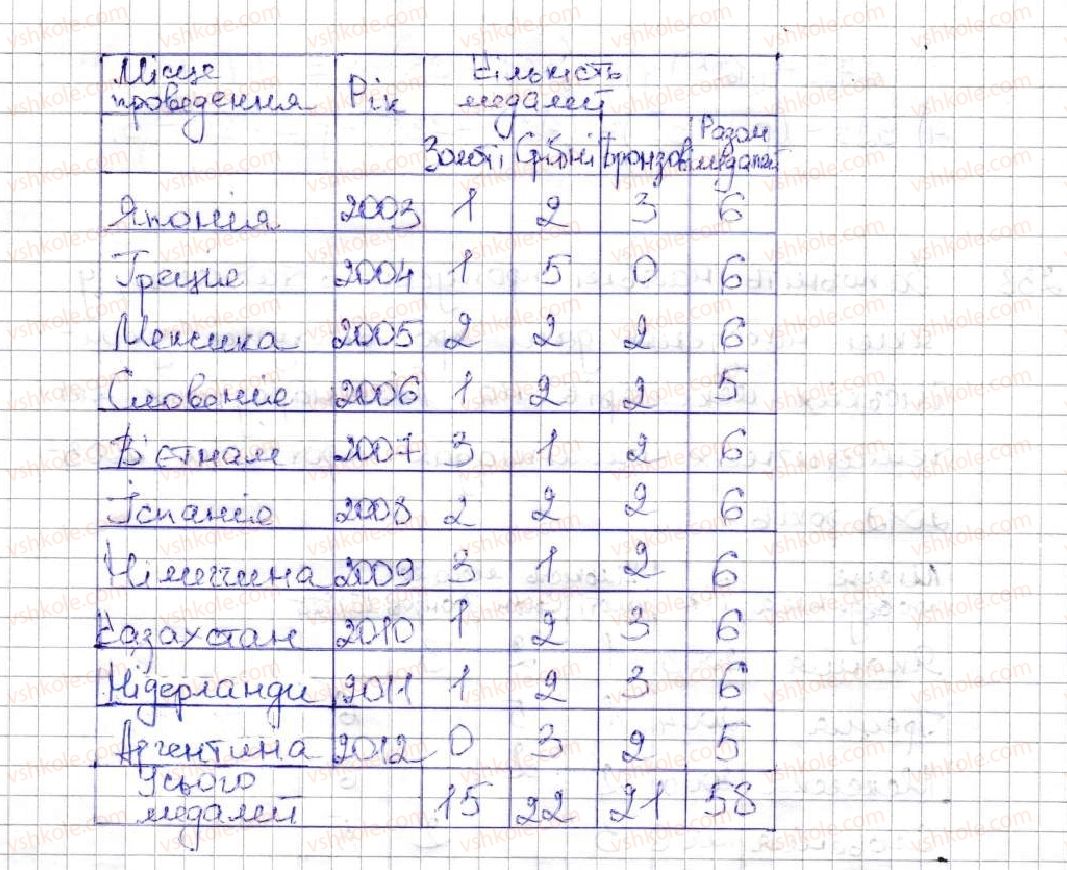 Місце Рік Кількість
проведення медалей
Золоті Срібні Бронзові Разом
медалей
Японія 2003 1 2 3 6
Греція 2004 1 5 0 6
Мексика 2005 2 2 2 6
Словенія 2006 1 2 2 5
В'єтнам 2007 3 1 2 6
Іспанія 2008 2 2 2 6
Німеччина 2009 3 1 2 6
Казахстан 2010 1 2 3 6
Нідерланди 2011 1 2 3 6
Аргентина 2012 0 3 2 5
Усього
медалей 15 22 21 58